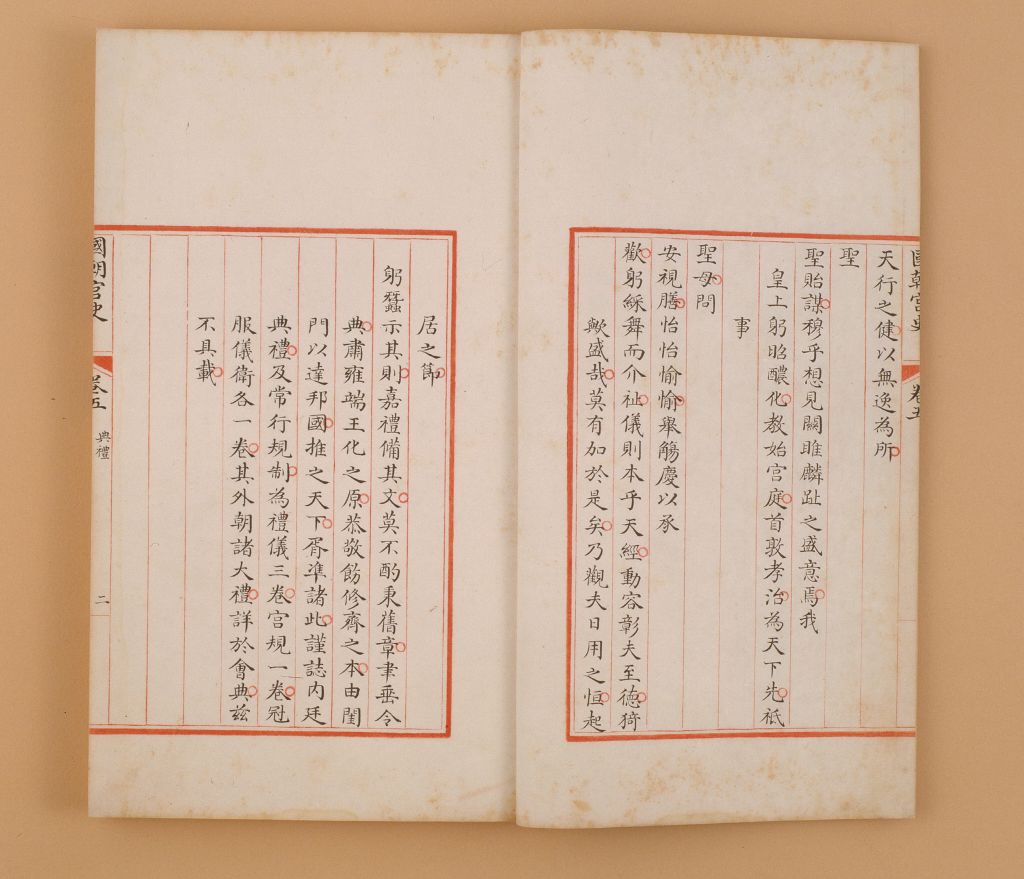 國朝宮史
卷五
天行之健以無逸為所
聖
聖貽謀穆乎想見關雎麟趾之盛意焉我
皇上躬昭醲化教始宮庭首敦孝治為天下先祇
事
聖母問
安視膳怡怡愉愉舉觴慶以承
歡躬綵舞而介祉儀則本乎天經動容彰夫至德猗
歟盛哉莫有加於是矣乃觀夫日用之恒起
居之節
躬蠶示其則嘉禮備其文莫不酌秉舊章聿垂令
典肅雍端王化之原恭敬飭修齊之本由閨
門以達邦國推之天下胥準諸此謹誌內廷
典禮及常行規制為禮儀三卷宮規一卷冠
服儀衛各一卷其外朝諸大禮詳於會典茲
不具載
國朝宮史
卷五
典禮
二